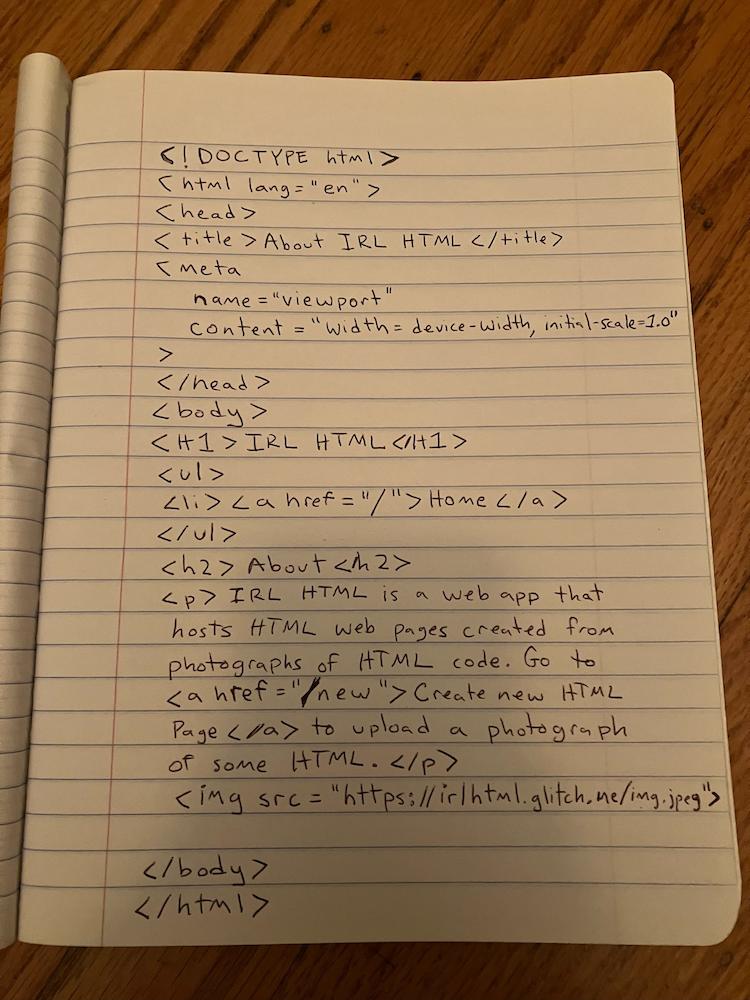 <!DOCTYPE html>
<html lang="en">
<head>
<title>About IRL HTML</title>
<meta
name="viewport"
content="width=device-width, initial-scale=1.0"
>
</head>
<body>
<H1>IRL HTML</H1>
<ul>
<li><a href="/">Home</a>
</ul>
<h2>About</h2>
<p>IRL HTML is a web app that
hosts HTML web pages created from
photographs of HTML code. Go to
<a href="/new">Create new HTML
Page</a> to upload a photograph
of some HTML.</p>
<img src="https://irlhtml.glitch.me/img.jpeg">
</body>
</html>